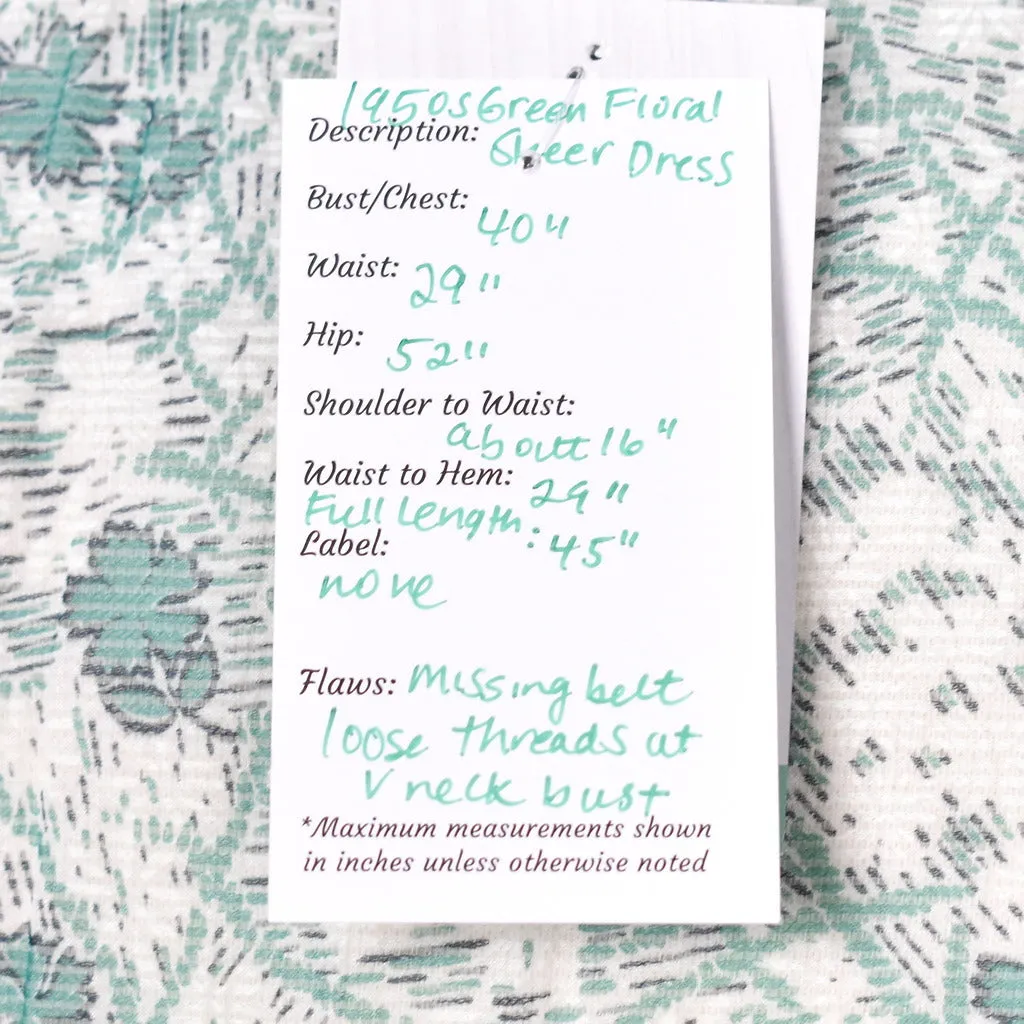 1950s Green Floral
Description: Sheer Dress
Bust/Chest: 40"
Waist: 29"
Hip: 52"
Shoulder to Waist:
aboutt 16"
Waist to Hem: 29"
Full Length: 45"
Label:
none
Flaws: Missing belt
loose threads at
V neck bust
*Maximum measurements shown
in inches unless otherwise noted